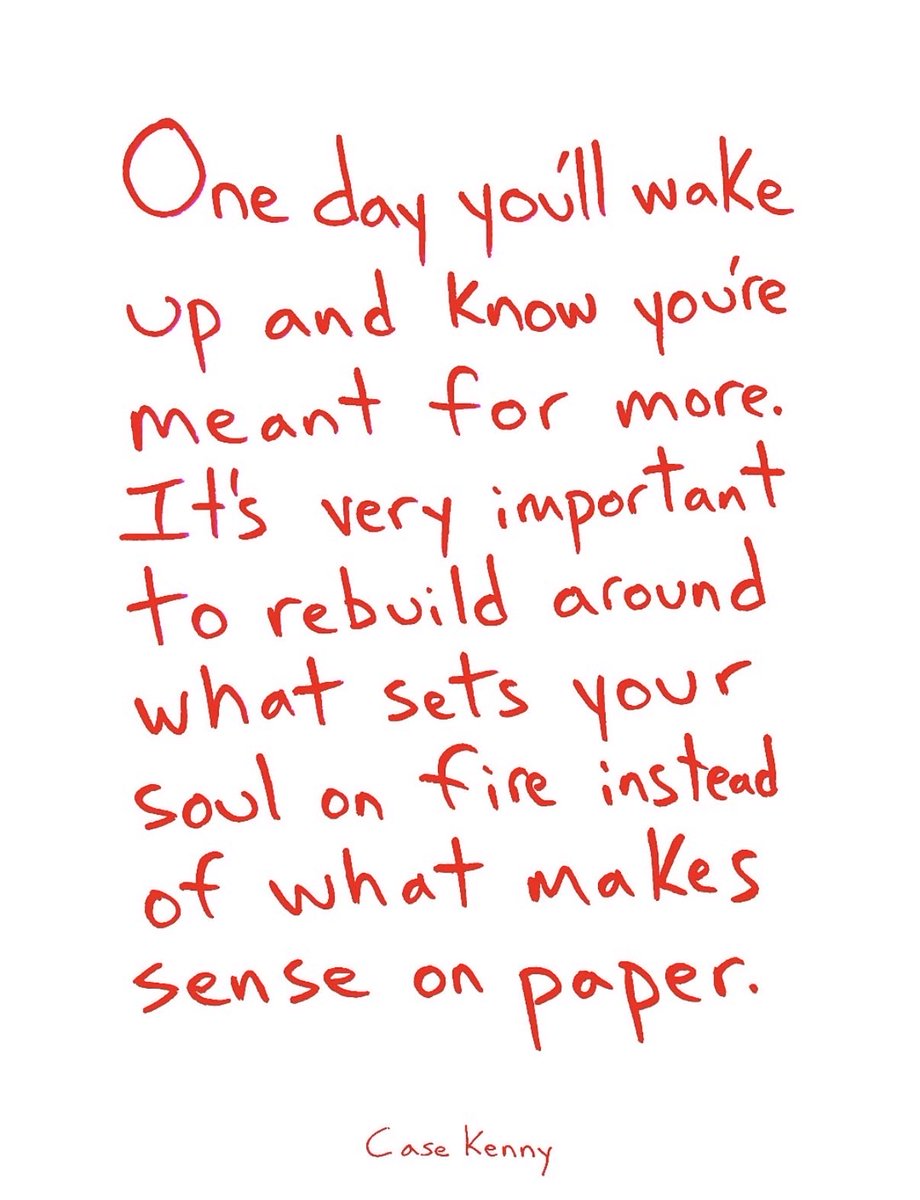 One day you'll wake
up and know you're
meant for more.
It's very important
to rebuild around
what sets your
soul on fire instead
of what makes
sense on paper.
Case Kenny